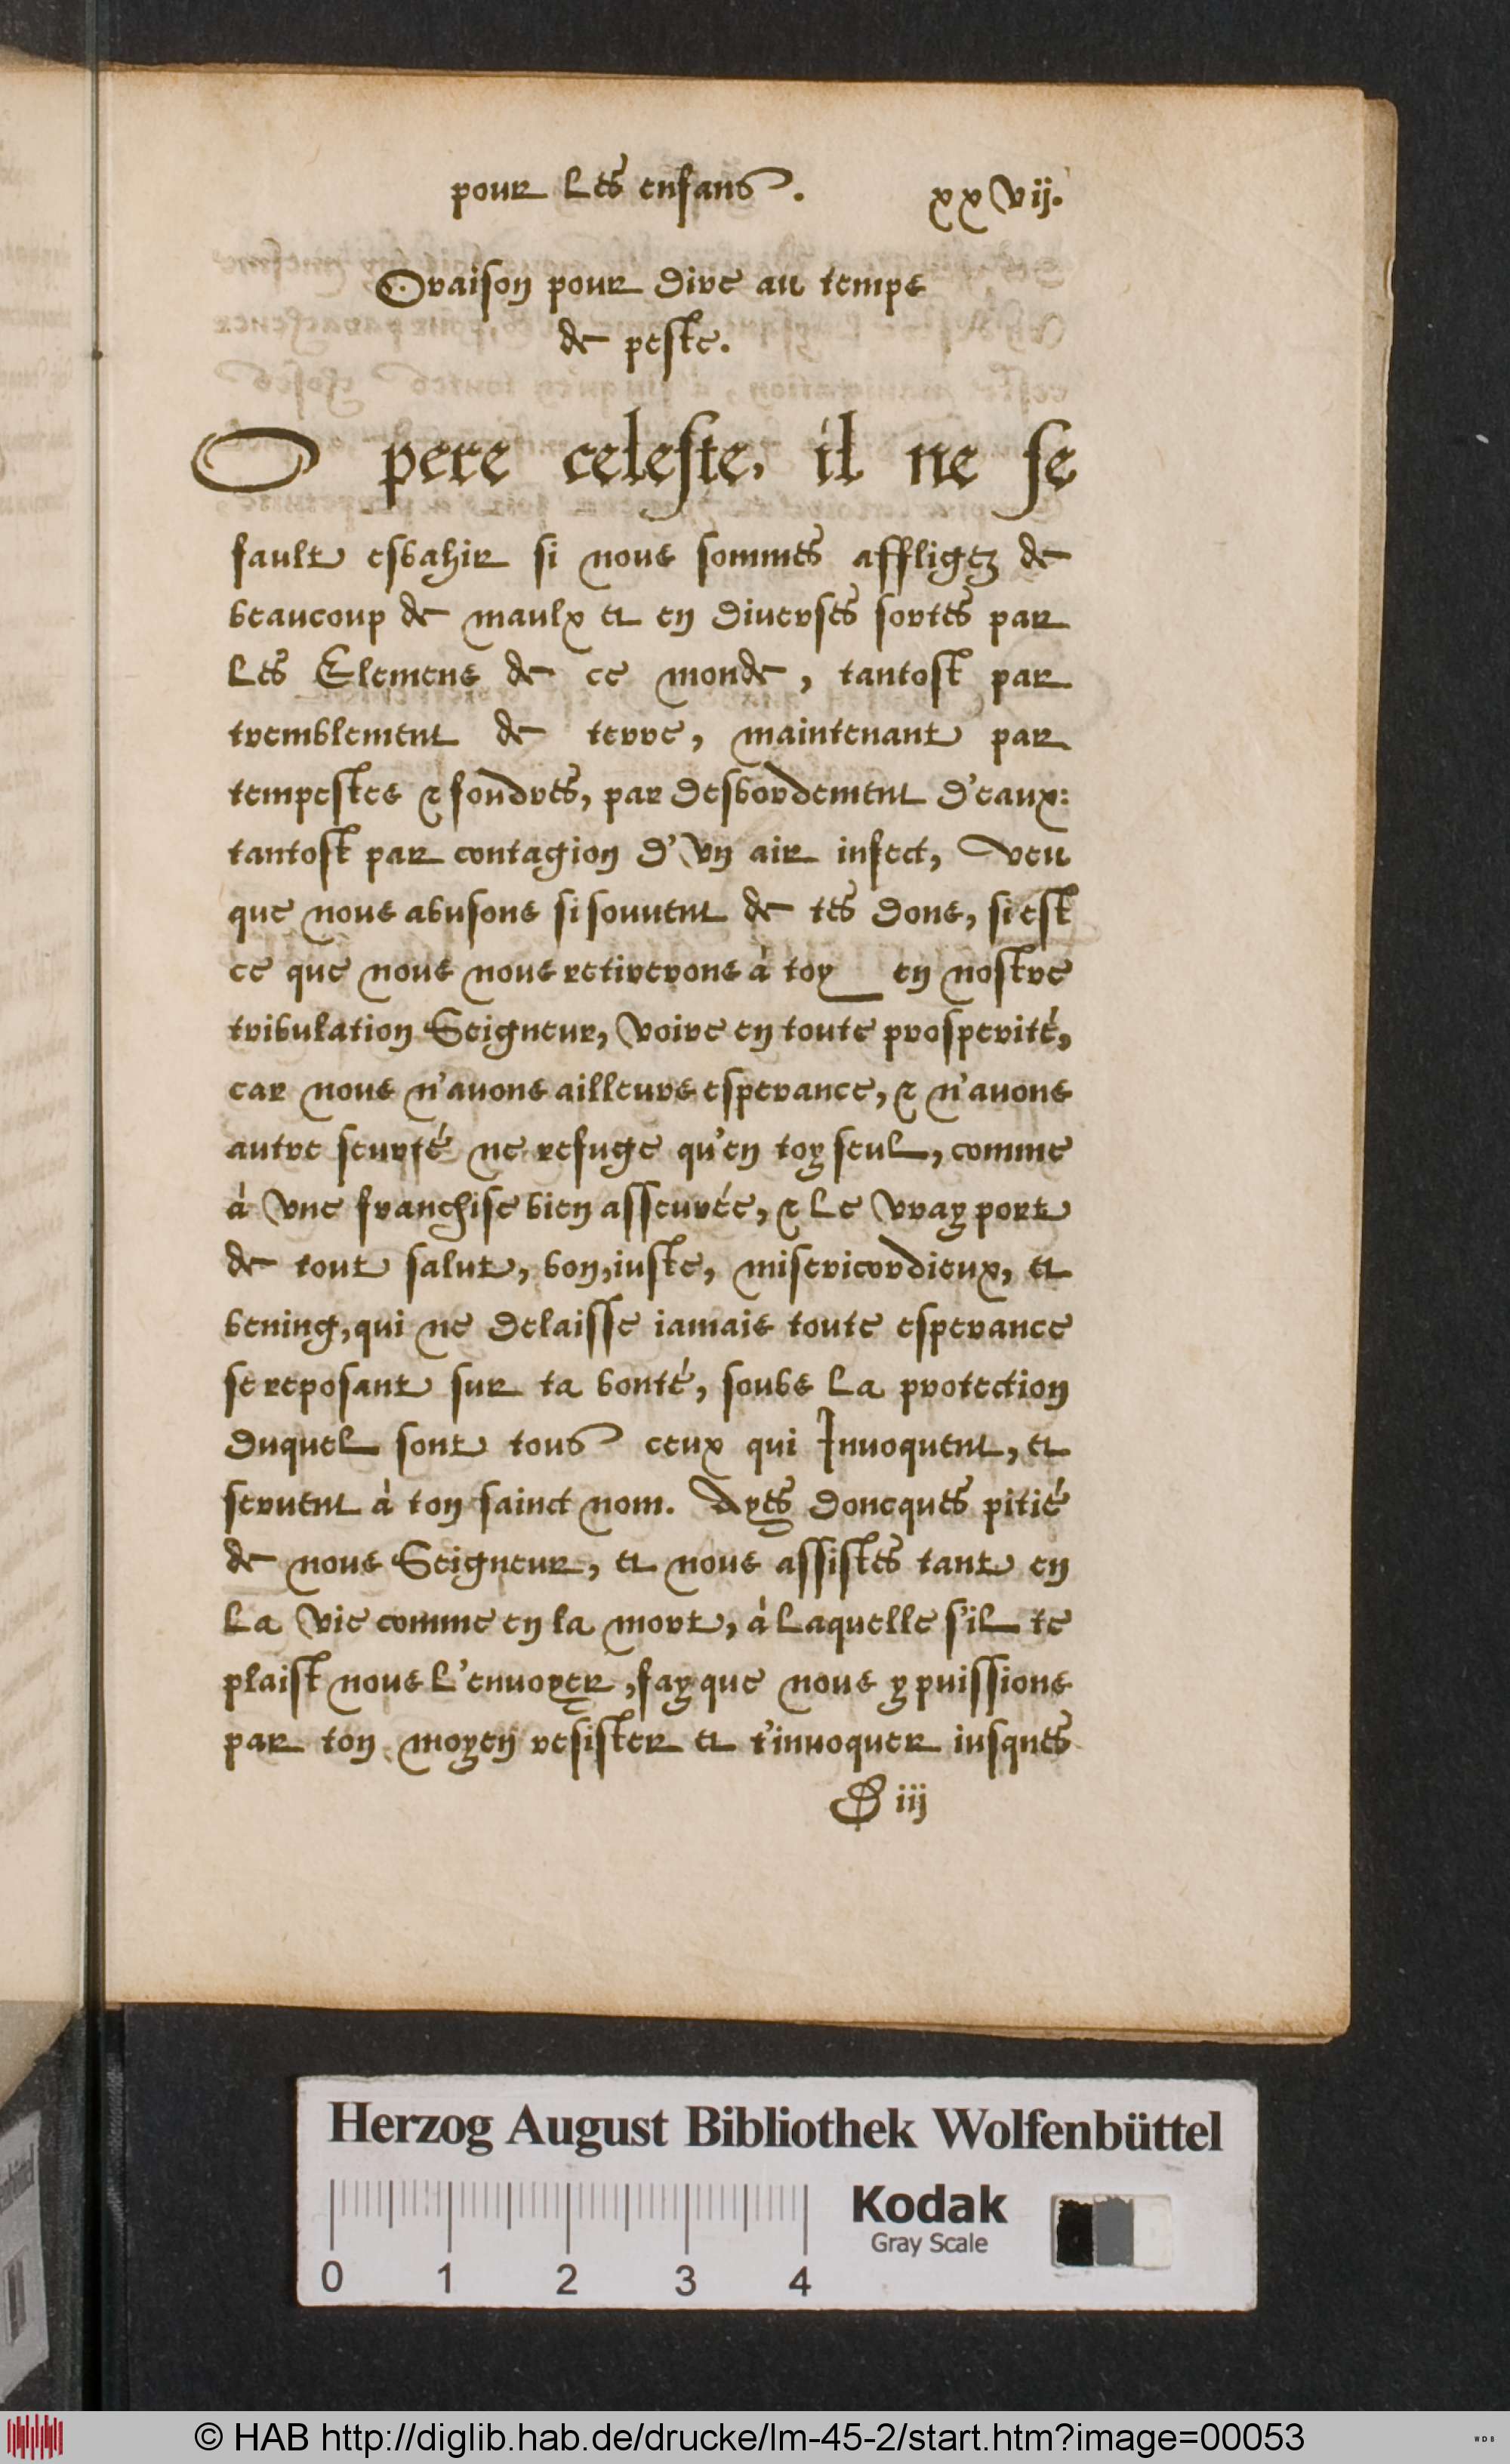 pour les enfans.
xxvij.
Oraison pour dire au temps
de peste.
O pere celeste, il ne se
fault esbahir si nous sommes affligez de
beaucoup de maulx et en diuerses sortes par
les Elemens de ce monde, tantost par
tremblement de terre, maintenant par
tempestes & foudres, par desbordement d'eaux:
tantost par contagion d'vn air infect, veu
que nous abusons si souuent de tes dons, si est
ce que nous nous retirerons à toy en nostre
tribulation Seigneur, voire en toute prosperité,
car nous n'auons ailleurs esperance, & n'auons
autre seurté ne refuge qu'en toy seul, comme
à vne franchise bien asseurée, & le vray port
de tout salut, bon, iuste, misericordieux, et
bening, qui ne delaisse iamais toute esperance
se reposant sur ta bonté, soubs la protection
duquel sont tous ceux qui Inuoquent, et
seruent à ton sainct nom. Ayes doncques pitié
de nous Seigneur, et nous assistes tant en
la vie comme en la mort, à laquelle s'il te
plaist nous l'enuoyer, fay que nous y puissions
par ton moyen resister et t'inuoquer iusques
D iij
Herzog August Bibliothek Wolfenbüttel
Kodak
Gray Scale
0 1 2 3 4
© HAB http://diglib.hab.de/drucke/lm-45-2/start.htm?image=00053